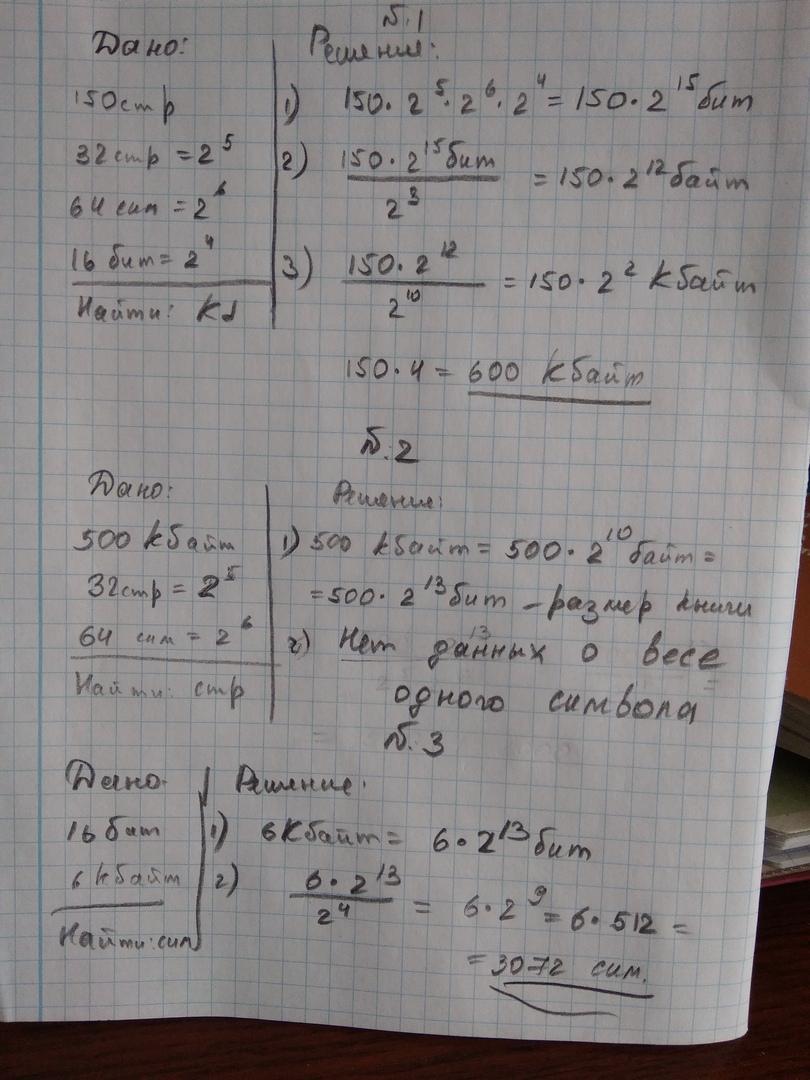 №.1
Дано:
150 стр
32 стр = 2^5
64 сим = 2^6
16 бит = 2^4
Найти:
Решение:
1) 150 · 2^5 · 2^6 · 2^4 = 150 · 2^15 бит
2) 150 · 2^15 бит / 2^3 = 150 · 2^12 байт
3) 150 · 2^12 / 2^10 = 150 · 2^2 Кбайт
150 · 4 = 600 Кбайт
№.2
Дано:
500 Кбайт
32 стр = 2^5
64 сим = 2^6
Найти: стр
Решение:
1) 500 Кбайт = 500 · 2^10 байт =
= 500 · 2^13 бит – размер книги
2) Нет данных о весе
одного символа
№.3
Дано
16 бит
6 Кбайт
Найти: сим
Решение:
1) 6 Кбайт = 6 · 2^13 бит
2) 6 · 2^13 / 2^4 = 6 · 2^9 = 6 · 512 =
= 3072 сим.